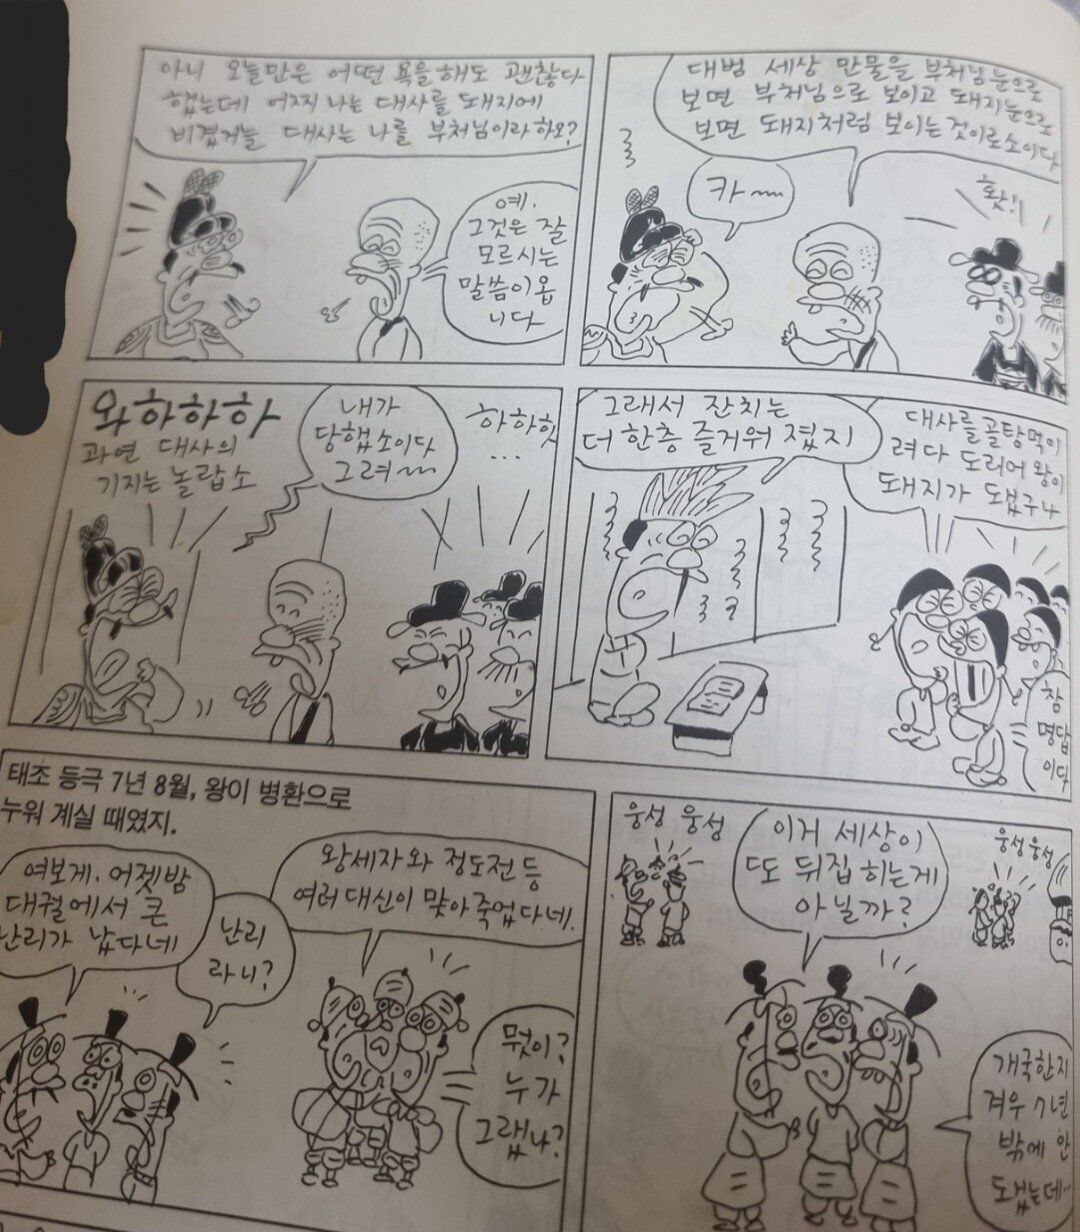 아니 오늘만은 어떤 욕을해도 괜찮다
했는데 어찌 나는 대사를 돼지에
비겼거늘 대사는 나를 부처님이라하오?
예.
그것은 잘
모르시는
말씀이옵
니다
대범 세상 만물을 부처님눈으로
보면 부처님으로 보이고 돼지눈으로
보면 돼지처럼 보이는 것이로소이다
카~~
홋!!
와하하하
과연 대사의
기지는 놀랍소
내가
당했소이다
그려~~
하하핫
...
그래서 잔치는
더 한층 즐거워 졌지
대사를골탕먹이
려다 도리어 왕이
돼지가 됐구나
참
명답
이다
태조 등극 7년 8월, 왕이 병환으로
누워 계실 때였지.
여보게. 어젯밤
대궐에서 큰
난리가 났다네
난리
라니?
왕세자와 정도전 등
여러 대신이 맞아죽었다네.
뭣이?
누가
그랬나?
웅성 웅성
이거 세상이
또 뒤집히는게
아닐까?
웅성웅성
개국한지
겨우 7년
밖에 안
됐는데...